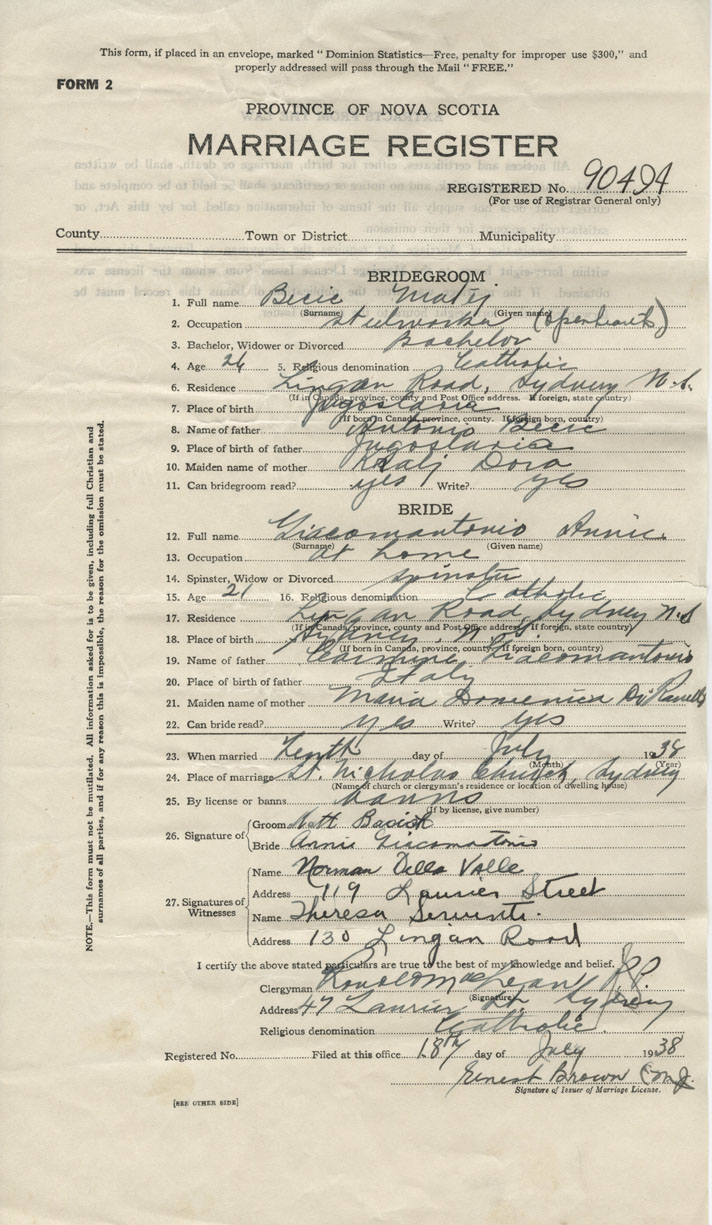 This form, if placed in an envelope, marked "Dominion Statistics—Free, penalty for improper use $300," and
properly addressed will pass through the Mail "FREE."
FORM 2
PROVINCE OF NOVA SCOTIA
MARRIAGE REGISTER
REGISTERED No. 90494
(For use of Registrar General only)
County Town or District Municipality
BRIDEGROOM
1. Full name Becic Matij
(Surname) (Given name)
2. Occupation steelworker (openhearth)
3. Bachelor, Widower or Divorced Bachelor
4. Age 26 5. Religious denomination Catholic
6. Residence Lingan Road, Sydney N.S.
(If in Canada, province, county and Post Office address. If foreign, state country)
7. Place of birth Jugoslavia
(If born in Canada, province, county. If foreign born, country)
8. Name of father Antonio Becic
9. Place of birth of father Jugoslavia
10. Maiden name of mother Kralj Dora
11. Can bridegroom read? yes Write? yes
BRIDE
12. Full name Giacomantonio Annie.
(Surname) (Given name)
13. Occupation at home
14. Spinster, Widow or Divorced spinster
15. Age 21 16. Religious denomination Catholic
17. Residence Lingan Road, Sydney N.S
(If in Canada, province, county and Post Office address. If foreign, state country)
18. Place of birth Sydney, N.S.
(If born in Canada, province, county. If foreign born, country)
19. Name of father Carmine Giacomantonio
20. Place of birth of father Italy
21. Maiden name of mother Maria Domenica
22. Can bride read? yes Write? yes
23. When married Tenth day of July 1938
(Month) (Year)
24. Place of marriage St. Nicholas Church, Sydney
(Name of church or clergyman's residence or location of dwelling house)
25. By license or banns banns
(If by license, give number)
26. Signature of
Groom Matt
Bride Annie Giacomantonio
27. Signatures of Witnesses
Name Norman Della Valle
Address 119 Laurier Street
Name Theresa Serventi.
Address 130 Lingan Road
I certify the above stated particulars are true to the best of my knowledge and belief.
Clergyman P.P.
(Signature)
Address 47 Laurier St. Sydney
Religious denomination Catholic.
Registered No. Filed at this office 18th day of July 1938
Ernest Brown
Signature of Issuer of Marriage License.
[SEE OTHER SIDE]
NOTE.—This form must not be mutilated. All information asked for is to be given, including full Christian and
surnames of all parties, and if for any reason this is impossible, the reason for the omission must be stated.